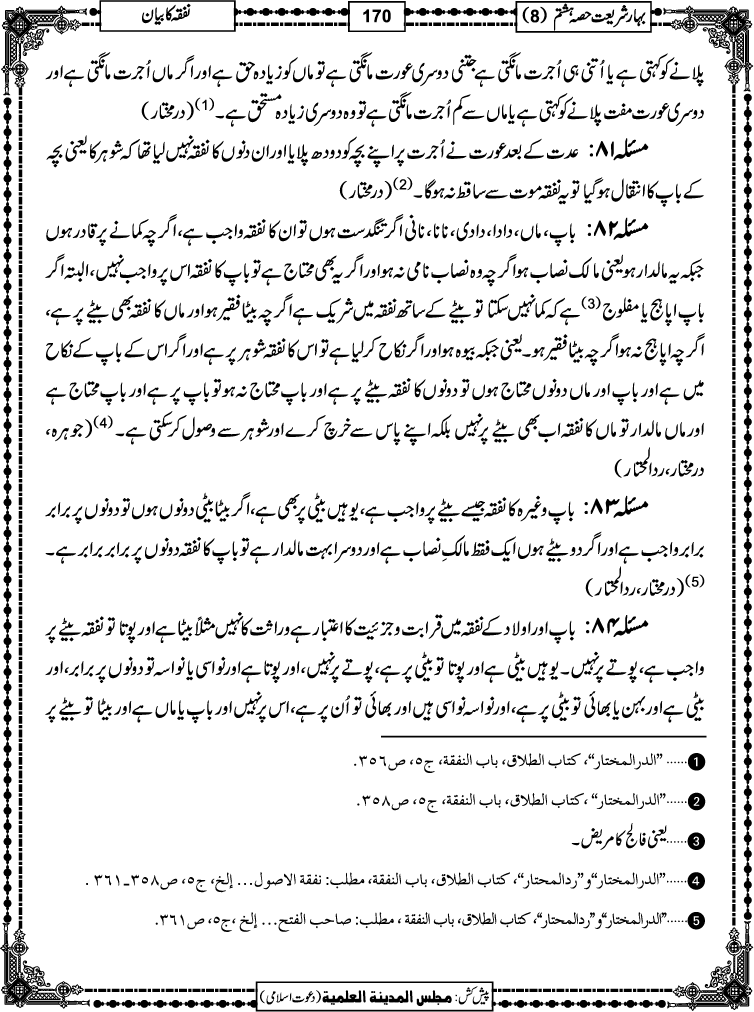 بہارِ شریعت حصہ ہشتم (8)
170
نفقہ کا بیان
پلانے کو کہتی ہے یا اُتنی ہی اُجرت مانگتی ہے جتنی دوسری عورت مانگتی ہے تو ماں کو زیادہ حق ہے اور اگر ماں اُجرت مانگتی ہے اور
دوسری عورت مفت پلانے کو کہتی ہے یا ماں سے کم اُجرت مانگتی ہے تو وہ دوسری زیادہ مستحق ہے۔(1) (درمختار)
مسئلہ ۸۱: عدت کے بعد عورت نے اُجرت پر اپنے بچہ کو دودھ پلایا اور ان دنوں کا نفقہ نہیں لیا تھا کہ شوہر کا یعنی بچہ
کے باپ کا انتقال ہوگیا تو یہ نفقہ موت سے ساقط نہ ہوگا۔(2) (درمختار)
مسئلہ ۸۲: باپ، ماں، دادا، دادی، نانا، نانی اگر تنگدست ہوں تو ان کا نفقہ واجب ہے، اگرچہ کمانے پر قادر ہوں
جبکہ یہ مالدار ہو یعنی مالک نصاب ہو اگرچہ وہ نصاب نامی نہ ہو اور اگر یہ بھی محتاج ہے تو باپ کا نفقہ اس پر واجب نہیں، البتہ اگر
باپ اپاہج یا مفلوج(3) ہے کہ کما نہیں سکتا تو بیٹے کے ساتھ نفقہ میں شریک ہے اگرچہ بیٹا فقیر ہو اور ماں کا نفقہ بھی بیٹے پر ہے،
اگرچہ اپاہج نہ ہو اگرچہ بیٹا فقیر ہو۔ یعنی جبکہ بیوہ ہو اور اگر نکاح کرلیا ہے تو اس کا نفقہ شوہر پر ہے اور اگر اس کے باپ کے نکاح
میں ہے اور باپ اور ماں دونوں محتاج ہوں تو دونوں کا نفقہ بیٹے پر ہے اور باپ محتاج نہ ہو تو باپ پر ہے اور باپ محتاج ہے
اور ماں مالدار تو ماں کا نفقہ اب بھی بیٹے پر نہیں بلکہ اپنے پاس سے خرچ کرے اور شوہر سے وصول کرسکتی ہے۔(4) (جوہرہ،
درمختار، ردالمحتار)
مسئلہ ۸۳: باپ وغیرہ کا نفقہ جیسے بیٹے پر واجب ہے، یوہیں بیٹی پر بھی ہے، اگر بیٹا بیٹی دونوں ہوں تو دونوں پر برابر
برابر واجب ہے اور اگر دو بیٹے ہوں ایک فقط مالکِ نصاب ہے اور دوسرا بہت مالدار ہے تو باپ کا نفقہ دونوں پر برابر برابر ہے۔
(5) (درمختار، ردالمحتار)
مسئلہ ۸۴: باپ اور اولاد کے نفقہ میں قرابت و جزئیت کا اعتبار ہے وراثت کا نہیں مثلاً بیٹا ہے اور پوتا تو نفقہ بیٹے پر
واجب ہے، پوتے پر نہیں۔ یوہیں بیٹی ہے اور پوتا تو بیٹی پر ہے، پوتے پر نہیں، اور پوتا ہے اور نواسی یا نواسہ تو دونوں پر برابر، اور
بیٹی ہے اور بہن یا بھائی تو بیٹی پر ہے، اور نواسہ نواسی ہیں اور بھائی تو اُن پر ہے، اس پر نہیں اور باپ یا ماں ہے اور بیٹا تو بیٹے پر
1 ......"الدرالمختار"، کتاب الطلاق، باب النفقة، ج٥، ص٣٥٦.
2 ......"الدرالمختار"، کتاب الطلاق، باب النفقة، ج٥، ص٣٥٨.
3 ......یعنی فالج کا مریض۔
4 ......"الدرالمختار" و"ردالمحتار"، کتاب الطلاق، باب النفقة، مطلب: نفقة الاصول... إلخ، ج٥، ص٣٥٨۔٣٦١ .
5 ......"الدرالمختار" و"ردالمحتار"، کتاب الطلاق، باب النفقة ، مطلب: صاحب الفتح... إلخ ،ج٥، ص٣٦١.
پیش کش: مجلس المدینة العلمیة (دعوت اسلامی)